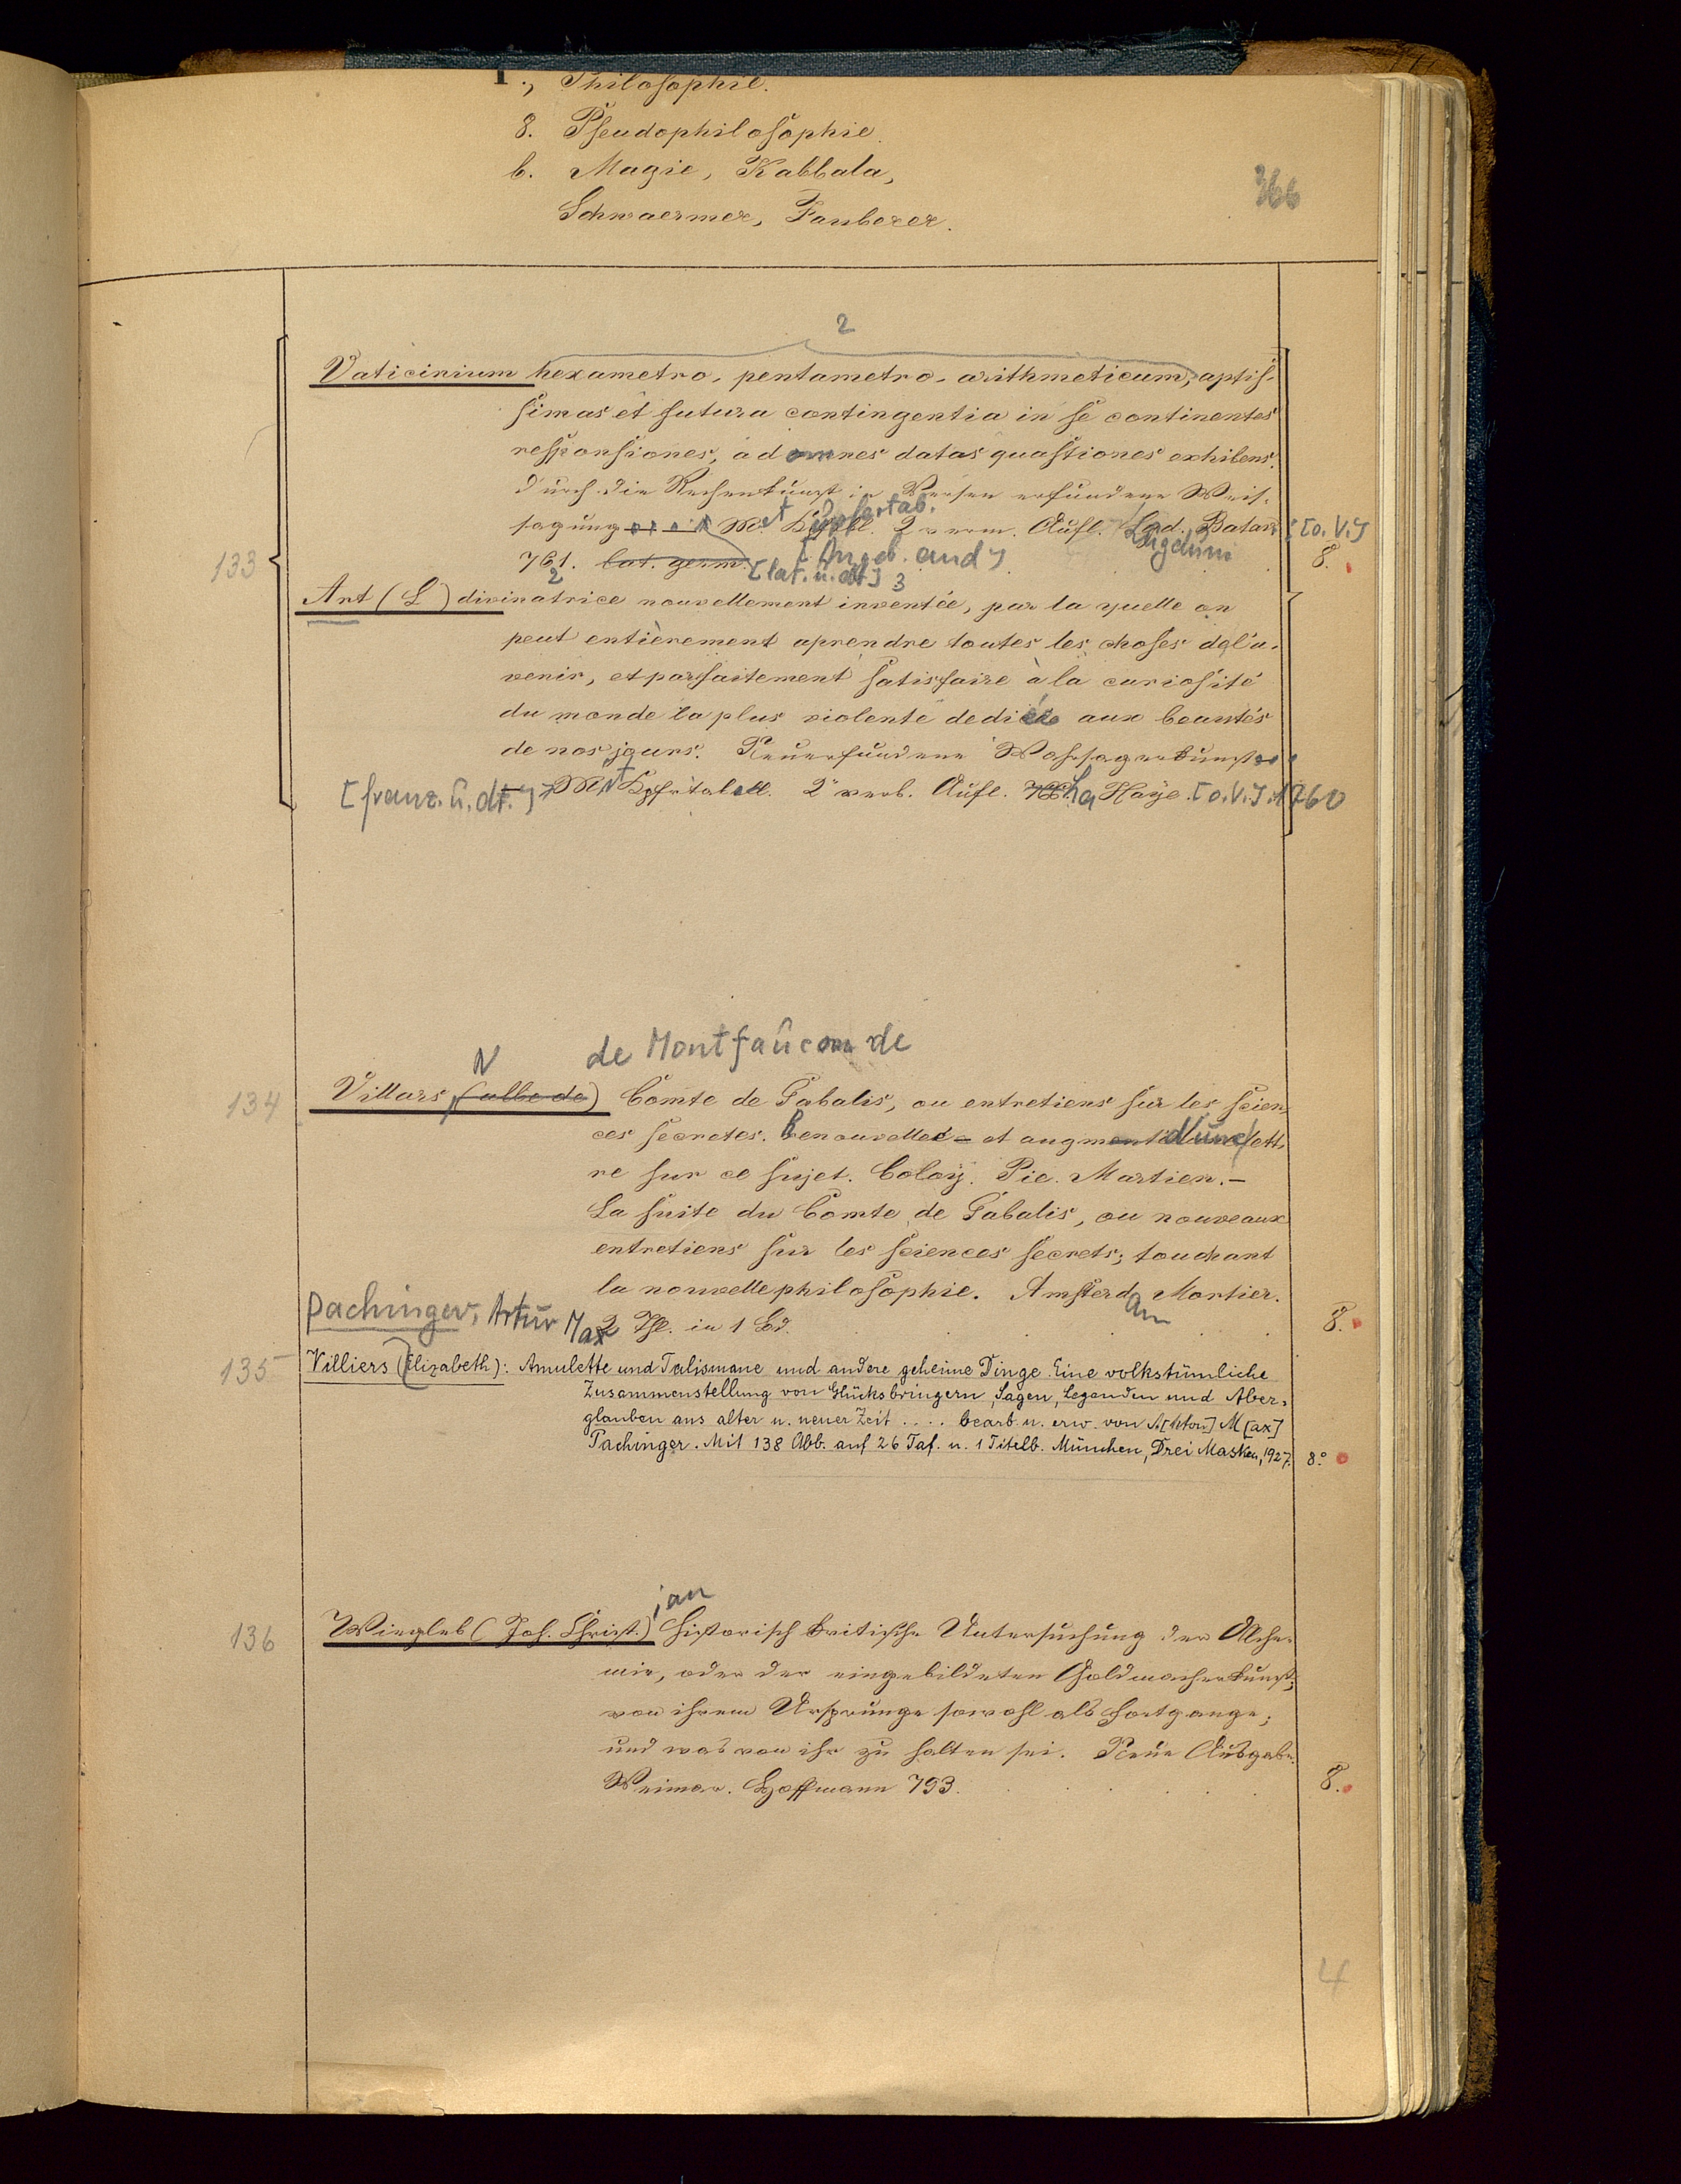 Philosophie.
8. Pseudophilosophie.
b. Magie, Kabbala,
Schwaermer, Zauberer.
366
2
Vaticinium hexametro-pentametro-arithmeticum, aptis-
simas et futura contingentia in se continentes
responsiones, ad omnes datas quastiones exhibens.
durch die Rechenkunst in Versen erfundene Weis-
sagung M. et 2 verm. Aufl. Lugduni Batav. [o. V.]
133
761. lat. germ. [lat. u. dt] [Angeb. and] 8.
2 3
Art (L') divinatrice nouvellement inventée, par la quelle on
peut entièrement aprendre toutes les choses de l'a-
venir, et parfaitement satisfaire à la curiosité
du monde la plus violente dediée aux beautés
de nos jours. Neuerfundene Wahrsagerkunst
[franz. u. dt.] Mit Kpfrtabell. 2 verb. Aufl. La Haye. [o. V.] 1760
N de Montfaucon de
134 Villars, (abbe de) Comte de Gabalis, ou entretiens sur les scien-
ces secretes. Renouvellee et augmente d'une lett-
re sur ce sujet. Coloy. Pie. Martien.—
La suite du Comte de Gabalis, ou nouveaux
entretiens sur les sciences secrets; touchant
la nouvelle philosophie. Amsterdam Mortier.
Pachinger, Artur Max 2 Thl. in 1 Bd. 8.
135 Villiers (Elizabeth): Amulette und Talismane und andere geheime Dinge. Eine volkstümliche
Zusammenstellung von Glücksbringern, Sagen, Legenden und Aber-
glauben aus alter u. neuer Zeit .... bearb. u. erw. von A[nton] M[ax]
Pachinger. Mit 138 Abb. auf 26 Taf. u. 1 Titelb. München, Drei Masken, 1927. 8°
ian
136 Wiegleb (Joh. Christ.) Historisch kritische Untersuchung der Alche-
mie, oder der eingebildeten Goldmacherkunst;
von ihrem Ursprunge sowohl als Fortgange;
und was von ihr zu halten sei. Neue Ausgabe.
Weimar. Hoffmann 793. 8.
4